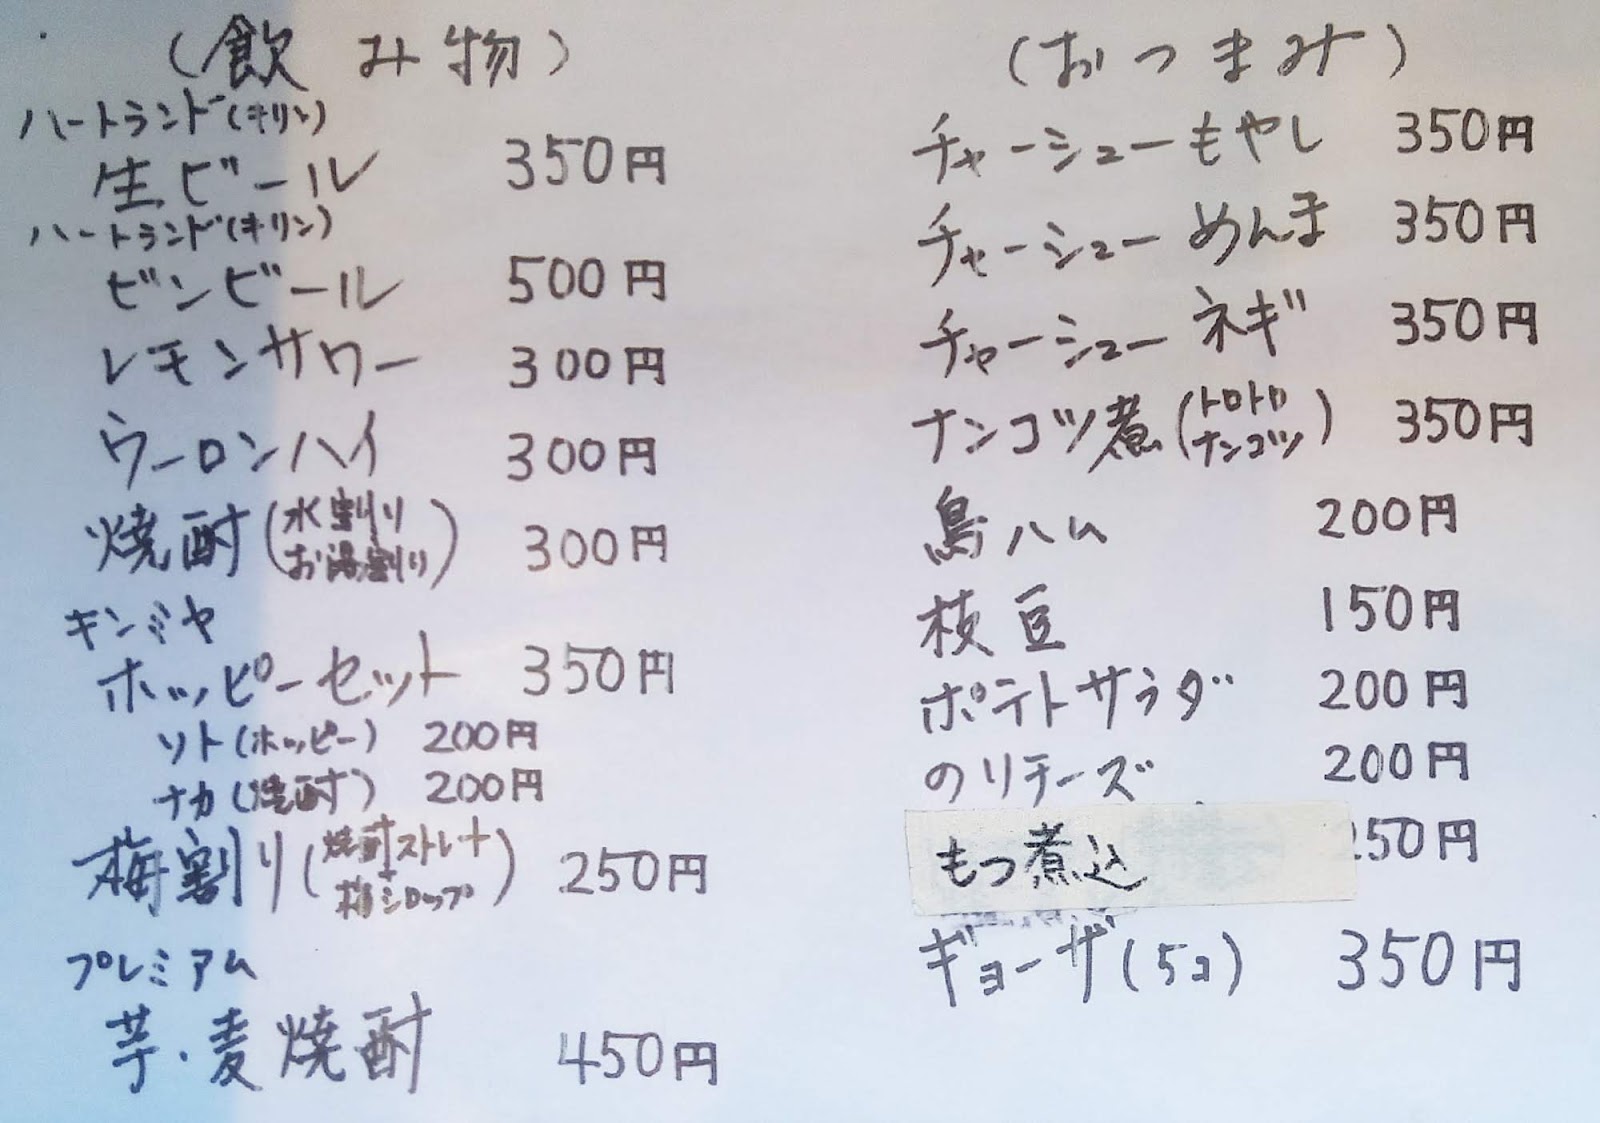 (飲み物)
ハートランド(キリン)
生ビール 350円
ハートランド(キリン)
ビンビール 500円
レモンサワー 300円
ウーロンハイ 300円
焼酎(水割り お湯割り) 300円
キンミヤ
ホッピーセット 350円
ソト(ホッピー) 200円
ナカ(焼酎) 200円
梅割り(焼酎ストレート+梅シロップ) 250円
プレミアム
芋・麦焼酎 450円
(おつまみ)
チャーシューもやし 350円
チャーシューめんま 350円
チャーシューネギ 350円
ナンコツ煮(トロトロ ナンコツ) 350円
鳥ハム 200円
枝豆 150円
ポテトサラダ 200円
のりチーズ 200円
もつ煮込 250円
ギョーザ(5コ) 350円